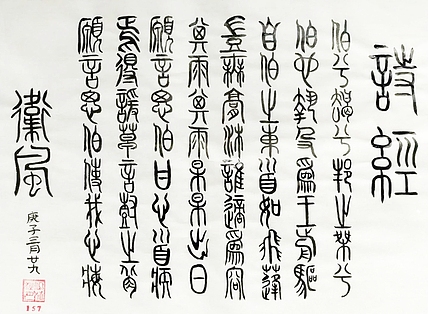 詩經
伯兮朅兮邦之桀兮
伯也執殳為王前驅
自伯之東首如飛蓬
豈無膏沐誰適為容
其雨其雨杲杲出日
願言思伯甘心首疾
焉得諼草言樹之背
願言思伯使我心痗
衛風
庚子三月廿九
157